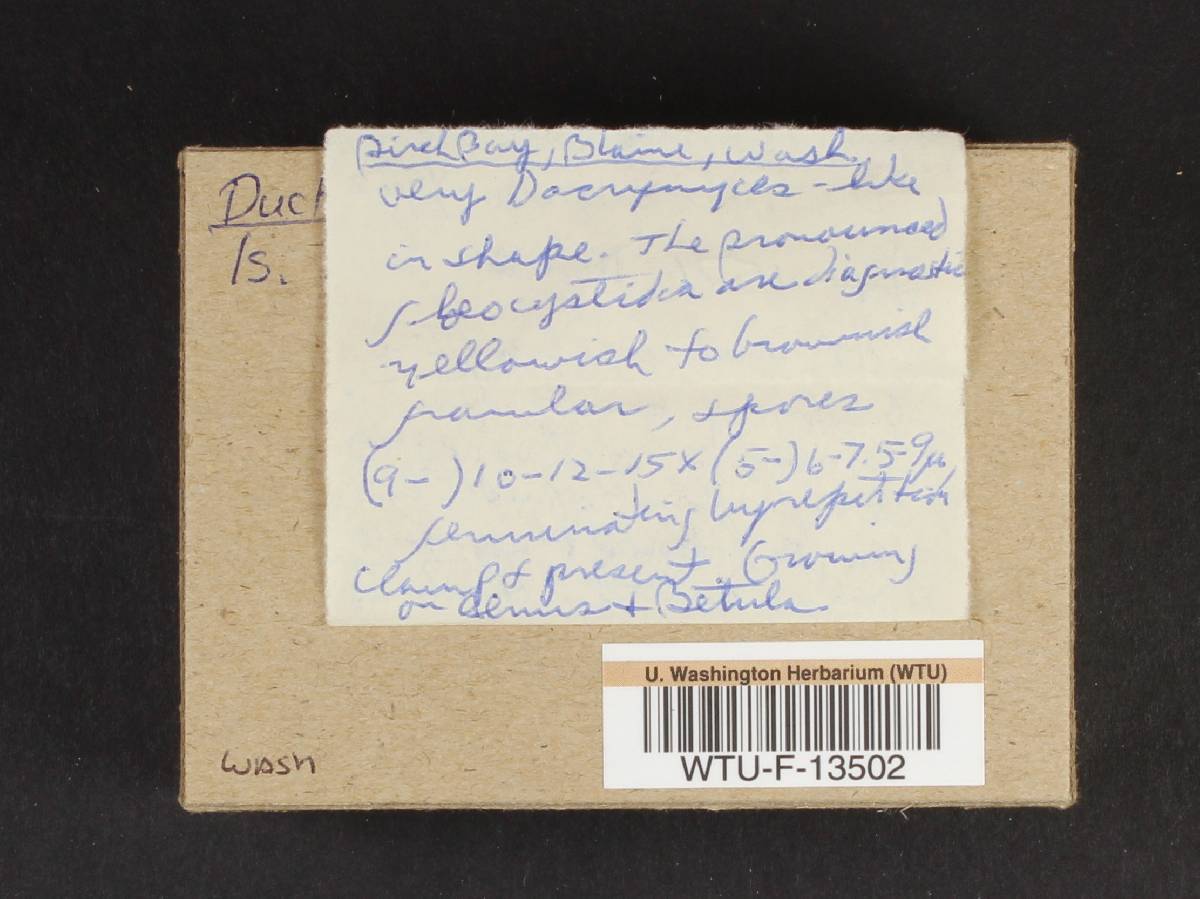 Birch Bay, Blaine, Wash
very Dacrymyces-like
in shape. The pronounced
gloeocystidia are diagnostic
yellowish to brownish
granular, spores
(9-)10-12-15x(5-)6-7.5-9µ,
germinating by repetition
clamps present. Growing
on Alnus + Betula
Duc
1s.
WASH
U. Washington Herbarium (WTU)
WTU-F-13502